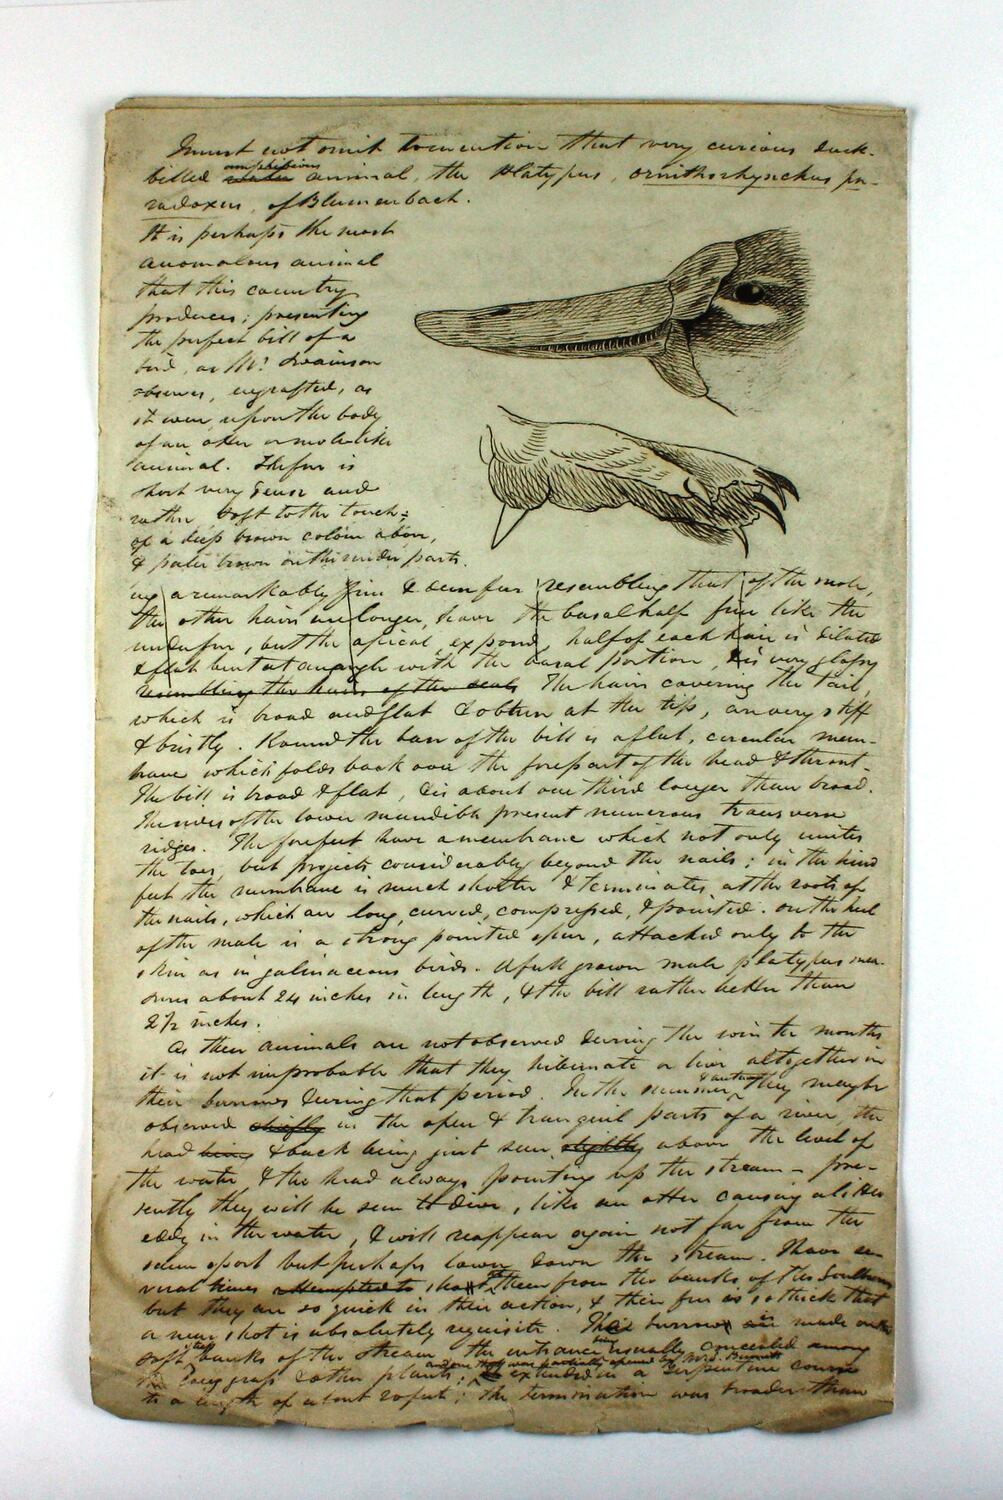 I must not omit to mention that very curious duck-
billed amphibious water animal, the Platypus, ornithorhynchus pa-
radoxus, of Blumenbach.
It is perhaps the most
anomolous animal
that this country
produces; presenting
the perfect bill of a
bird, as Mr. Swainson
observes, engrafted, as
it were, upon the body
of an otter or mole-like
animal. The fur is
short very dense and
rather soft to the touch;
of a deep brown colour above,
& paler brown on the under parts.
a remarkably fine & down fur resembling that of the mole,
the other hairs are longer, have the basal half fine like the
underfur, but the apical, exposed, half of each hair is dilated
& flat bent at an angle with the basal portion, & is very glossy
resembling the hairs of the seals The hairs covering the tail,
which is broad and flat & obtuse at the tip, are very stiff
& bristly. Round the base of the bill is a flat, circular mem-
brane which folds back over the forepart of the head & throat.
The bill is broad & flat, & is about one third longer than broad.
The sides of the lower mandible present numerous transverse
ridges. The forefeet have a membrane which not only unites
the toes, but projects considerably beyond the nails; in the hind
feet the membrane is much shorter & terminates at the roots of
the nails, which are long, curved, compressed, & pointed. On the heel
of the male is a strong pointed spur, attached only to the
skin as in galinaceous birds. A full grown male platypus mea-
sures about 24 inches in length, & the bill rather better than
2 1/2 inches.
As these animals are not observed during the winter months
it is not improbable that they hibernate or live altogether in
their burrows during that period. In the summer & autumn they may be
observed chiefly in the open & tranquil parts of a river, the
head being & back being just seen slightly above the level of
the water, & the head always pointing up the stream - pre-
sently they will be seen to dive, like an otter causing a little
eddy in the water, & will reappear again not far from the
same spot but perhaps lower down the stream. I have se-
veral times attempted to shoot them from the banks of the Goulburn
but they are so quick in their action, & their fur is so thick that
a near shot is absolutely requisite. Their burrows are made on the
soft banks of the stream, the entrance being usually concealed among
the long grass & other plants; and one that was partially opened by Mr. J. Burnett extended in a serpentine course
to a length of about 20 feet; the termination was broader than